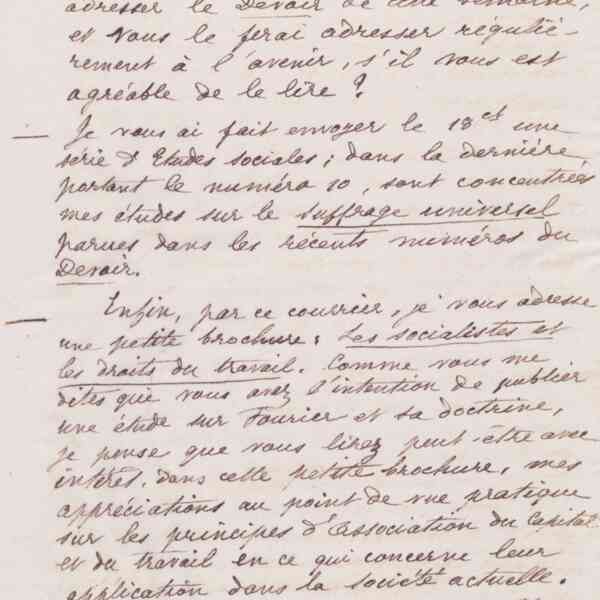 adresser le Devoir de cette semaine,
et vous le ferai adresser réguliè-
rement à l'avenir, s'il vous est
agréable de le lire ?
— Je vous ai fait envoyer le 18 ct une
série d'Etudes sociales ; dans la dernière
portant le numéro 10, sont concentrées
mes études sur le suffrage universel
parues dans les récents numéros du
Devoir.
— Enfin, par ce courrier, je vous adresse
une petite brochure : Les socialistes et
les droits du travail. Comme vous me
dites que vous avez l'intention de publier
une étude sur Fourier et sa doctrine,
je pense que vous lirez peut-être avec
intérêt, dans cette petite brochure, mes
appréciations au point de vue pratique
sur les principes d'association du Capital
et du travail en ce qui concerne leur
application dans la société actuelle.